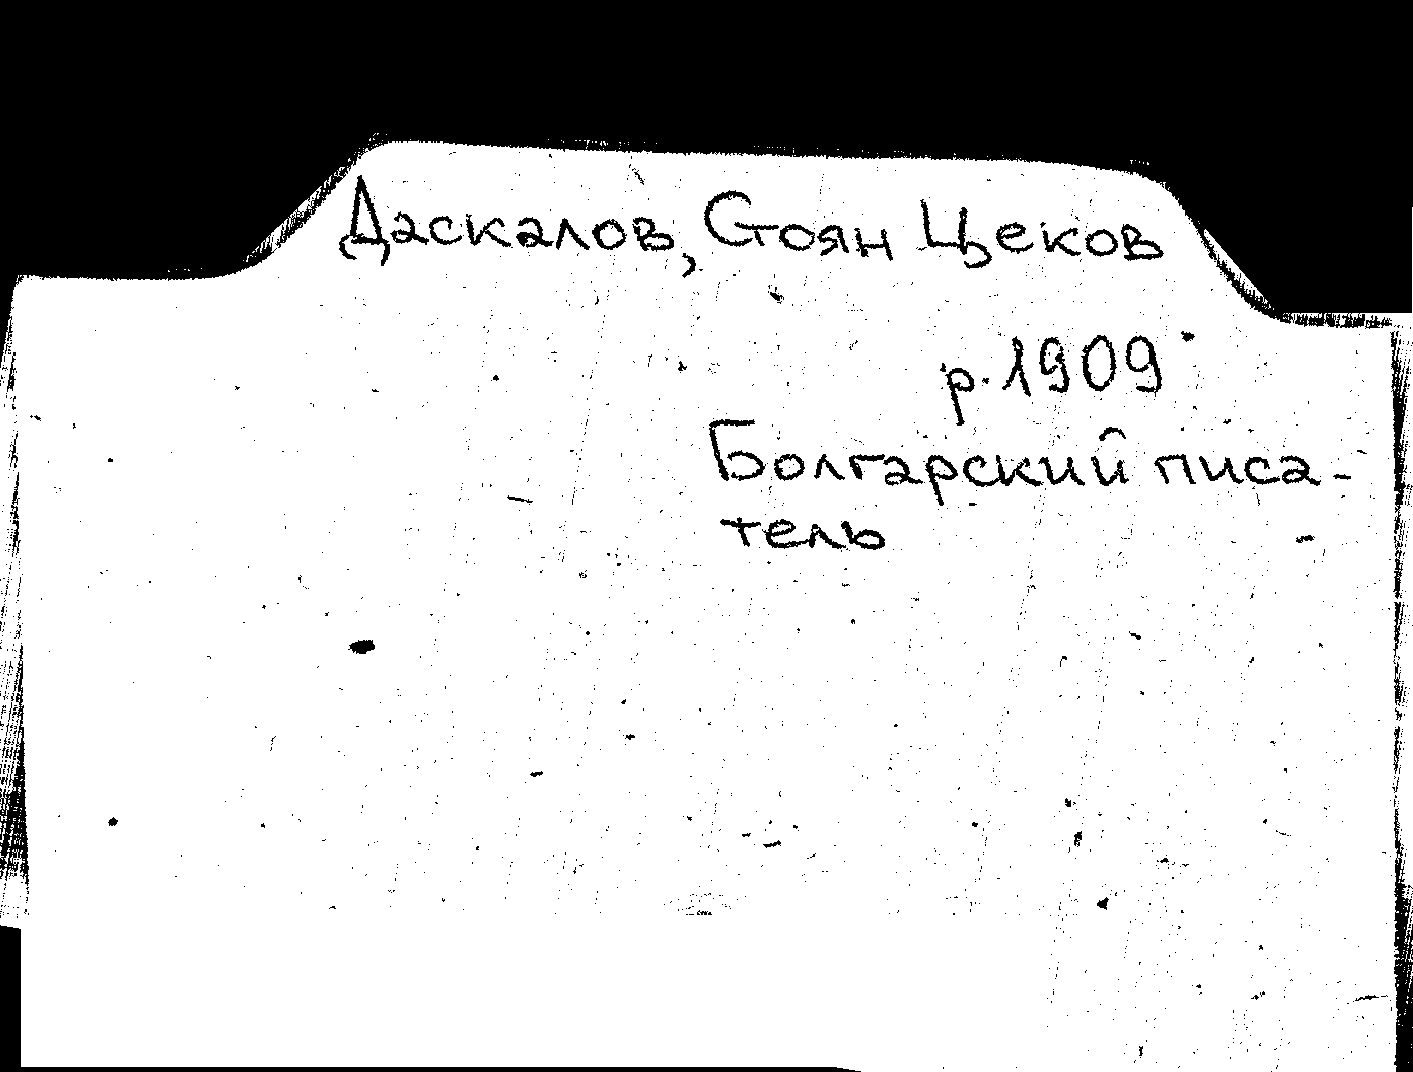 Даскалов, Стоян Цеков
р. 1909
Болгарский писа-
тель